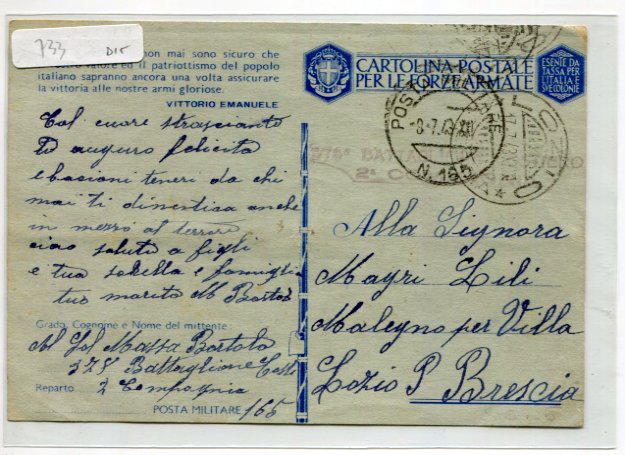 733 DIT
non mai sono sicuro che
ed il patriottismo del popolo
italiano sapranno ancora una volta assicurare
la vittoria alle nostre armi gloriose.
VITTORIO EMANUELE
CARTOLINA POSTALE
PER LE FORZE ARMATE
ESENTE DA
TASSA PER
L'ITALIA E
SVE COLONIE
POSTA MILITARE
-8.7.43
N. 165
LOZIO
12.7.43
2ª C
Col cuore strasciante
Ti auguro felicita
e bacioni teneri da chi
mai ti dimentica anche
in mezzo al terrore
ciao saluta figli
e tua sorella e famiglia
tuo marito M Bortol
Grado, Cognome e Nome del mittente
Massa Bortolo
Battaglione
Reparto 2 Compagnia
POSTA MILITARE 165
Alla Signora
Mayri Lili
Malegno per Villa
Lozio P Brescia